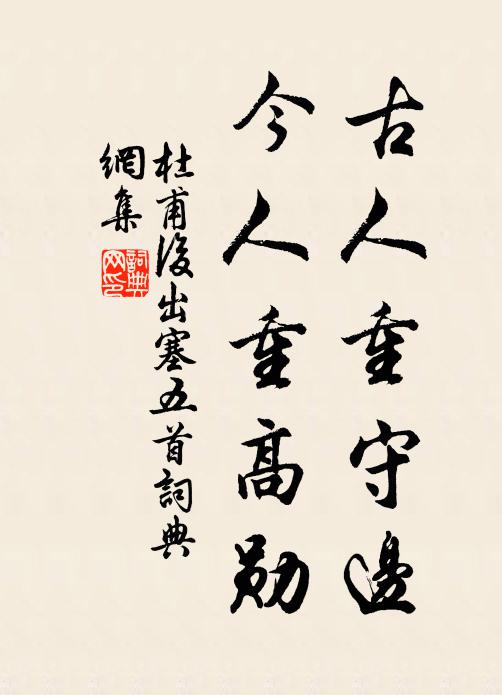 古人重守邊
今人重高勛
杜甫後出塞五首詞典
網集
詞典
网印